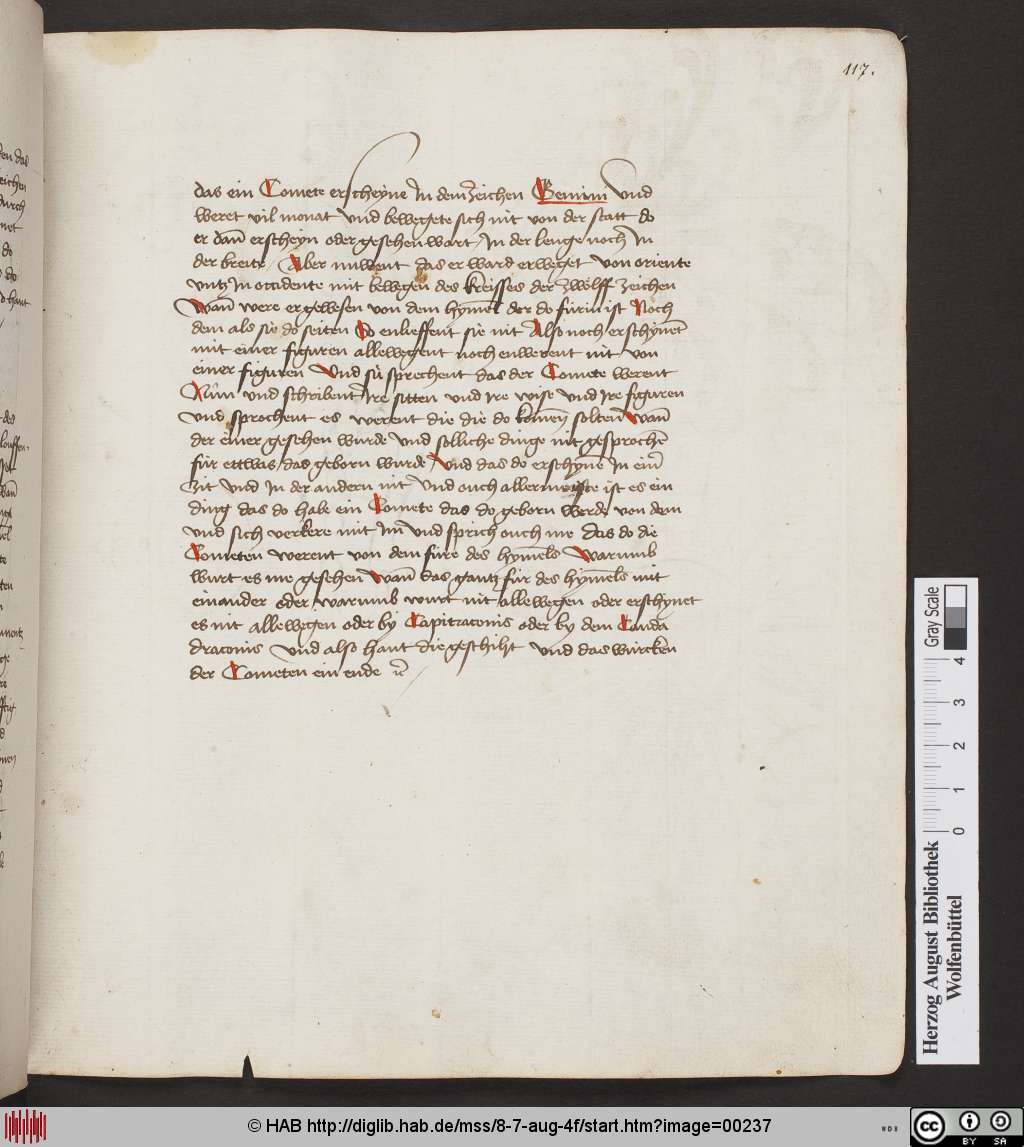 117.
das ein Comete erscheyne In dem zeichen Gemini Vnd
weret vil monat Vnd bewegete sich nit von der statt do
er dañ erscheyn oder gesehen wart / In der lenge noch In
der breite / Aber nuwent das er ward erweget von oriente
vntz In occidente mit bewegen des kreisses der zwölff zeichen
Wañ were er gewesen von dem hymel der do fürin ist Noch
dem als sie do seiten So enlieffent sie nit Also noch erschynet
mit einer figuren allewegent noch enwerent nit von
einer figuren Vnd sü sprechent das der Comete werent
Nün vnd schribent Ire sitten vnd ire wise vnd Ire figuren
vnd sprochent es werent die die do komen solten wañ
der einer gesehen wurde vnd solliche dinge nit gesprochē
für ettwas das geborn wurde / Vnd das do erschyne In einr
Zit Vnd In der andern nit Vnd ouch allermeiste ist es ein
ding das do habe ein Comete das do geborn werde von dem
vnd sich verkere mit Im vnd sprich ouch me das do die
Cometen werent von dem füre des hymels Warumb
wurt es me gesehen Wañ das gantz für des hymels mit
einander oder warumb wurt nit allewegen oder erschynet
es nit allewegen oder by Capitraconis oder by dem Cauda
draconis Vnd also hant die geschiht vnd das würcken
der Cometen ein ende
Herzog August Bibliothek
Wolfenbüttel
0 1 2 3 4
Gray Scale
© HAB http://diglib.hab.de/mss/8-7-aug-4f/start.htm?image=00237
WDB
cc BY SA